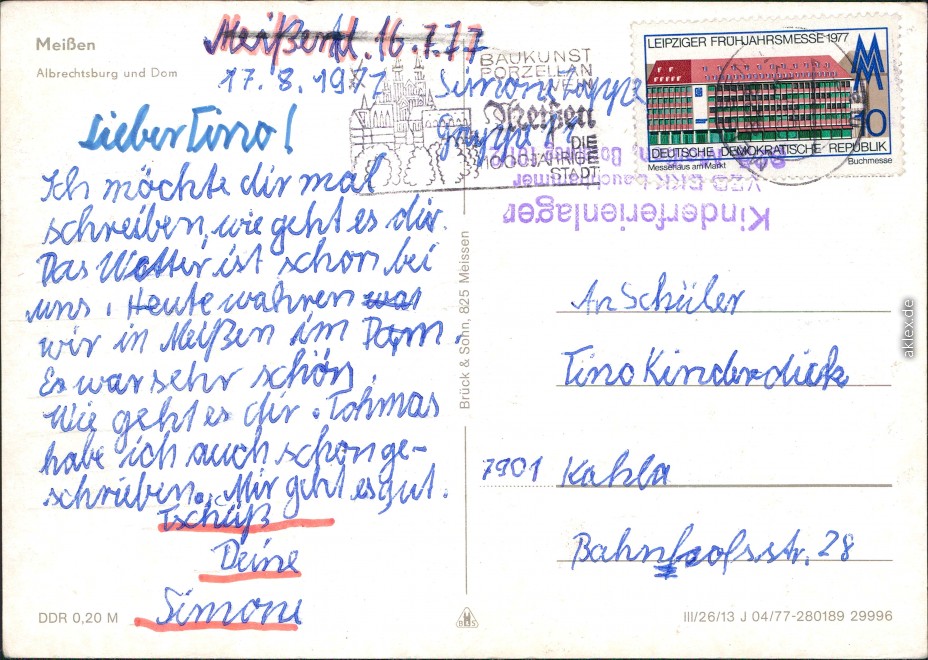 Meißen
Albrechtsburg und Dom
Meißen d. 16.7.77
17.8.1977
Lieber Tino!
Ich möchte dir mal
schreiben, wie geht es dir.
Das Wetter ist schon bei
uns. Heute wahren war
wir in Meißen im Dom.
Es war sehr schön.
Wie geht es dir. Tohmas
habe ich auch schon ge-
schrieben. Mir geht es gut.
Tschüß
Deine
Simone
DDR 0,20 M
Brück & Sohn, 825 Meissen
BAUKUNST
PORZELLAN
Meißen
DIE
1000JÄHRIGE
STADT
Simone
Gruppe
Kinderferienlager
LEIPZIGER FRÜHJAHRSMESSE 1977
10
DEUTSCHE DEMOKRATISCHE REPUBLIK
Messehaus am Markt
Buchmesse
An Schüler
Tino Kinderdick
7901 Kahla
Bahnhofsstr. 28
III/26/13 J 04/77-280189 29996
aklex.de